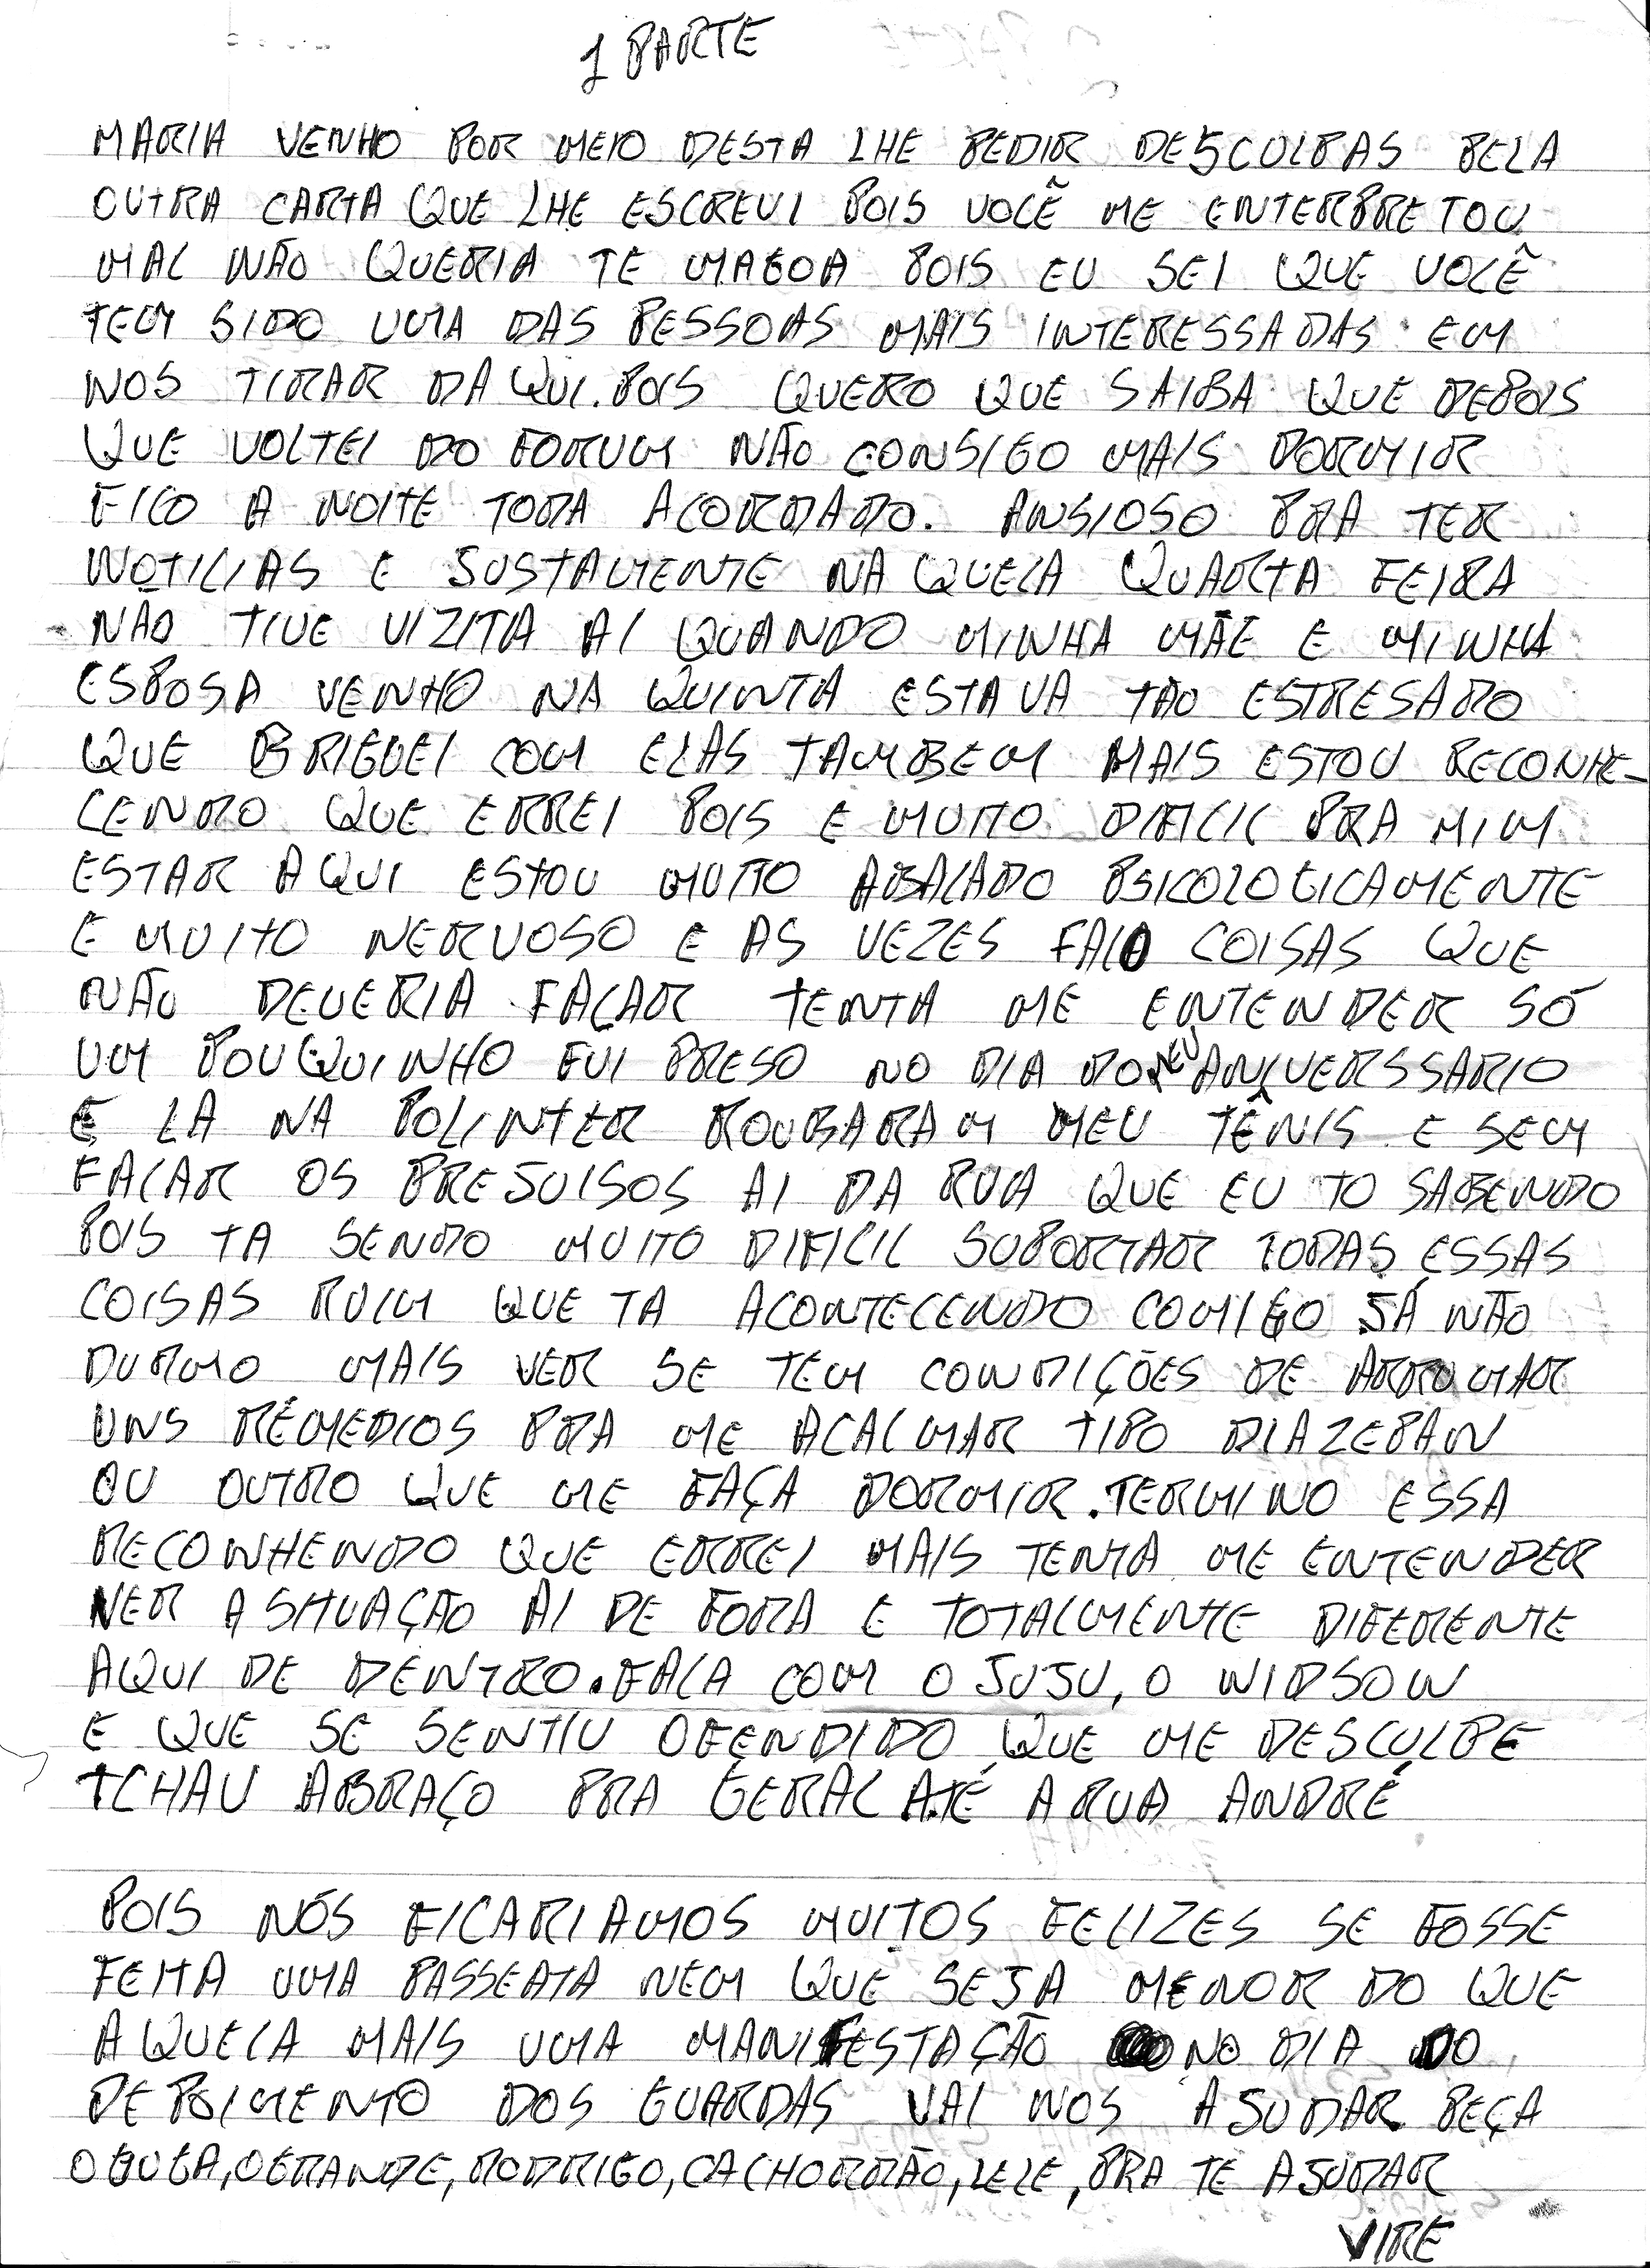 1 PARTE
MARIA VENHO POR MEIO DESTA LHE PEDIR DESCULPAS PELA
OUTRA CARTA QUE LHE ESCREVI POIS VOCÊ ME ENTERPRETOU
MAL NÃO QUERIA TE MAGOA POIS EU SEI QUE VOCÊ
TEM SIDO UMA DAS PESSOAS MAIS INTERESSADAS EM
NOS TIRAR DAQUI. POIS QUERO QUE SAIBA QUE DEPOIS
QUE VOLTEI DO FORUM NÃO CONSIGO MAIS DORMIR
FICO A NOITE TODA ACORDADO. ANSIOSO PRA TER
NOTICIAS E JUSTAMENTE NAQUELA QUARTA FEIRA
NÃO TIVE VIZITA AI QUANDO MINHA MÃE E MINHA
ESPOSA VENHO NA QUINTA ESTAVA TÃO ESTRESADO
QUE BRIGUEI COM ELAS TAMBEM MAIS ESTOU RECONHE-
CENDO QUE ERREI POIS E MUITO DIFICIL PRA MIM
ESTAR AQUI ESTOU MUITO ABALADO PSICOLOGICAMENTE
E MUITO NERVOSO E AS VEZES FALO COISAS QUE
NÃO DEVERIA FALAR TENTA ME ENTENDER SÓ
UM POUQUINHO FUI PRESO NO DIA DO MEU ANIVERSSARIO
E LA NA POLINTER ROUBARAM MEU TÊNIS E SEM
FALAR OS PREJUISOS AI DA RUA QUE EU TO SABENDO
POIS TA SENDO MUITO DIFICIL SUPORTAR TODAS ESSAS
COISAS RUIM QUE TA ACONTECENDO COMIGO JÁ NÃO
DURMO MAIS VER SE TEM CONDIÇÕES DE ARRUMAR
UNS RÉMEDIOS PRA ME ACALMAR TIPO DIAZEPAN
OU OUTRO QUE ME FAÇA DORMIR. TERMINO ESSA
RECONHENDO QUE ERREI MAIS TENTA ME ENTENDER
VER A SITUAÇÃO AI DE FORA E TOTALMENTE DIFERENTE
AQUI DE DENTRO. FALA COM O JUJU, O WIDSON
E QUE SE SENTIU OFENDIDO QUE ME DESCULPE
TCHAU ABRAÇO PRA GERAL ATÉ A RUA ANDRÉ
POIS NÓS FICARIAMOS MUITOS FELIZES SE FOSSE
FEITA UMA PASSEATA NEM QUE SEJA MENOR DO QUE
AQUELA MAIS UMA MANIFESTAÇÃO NO DIA DO
DEPOIMENTO DOS GUARDAS VAI NOS AJUDAR PEÇA
O GUGA, O GRANDE, RODRIGO, CACHORRÃO, LELE, PRA TE AJUDAR
VIRE